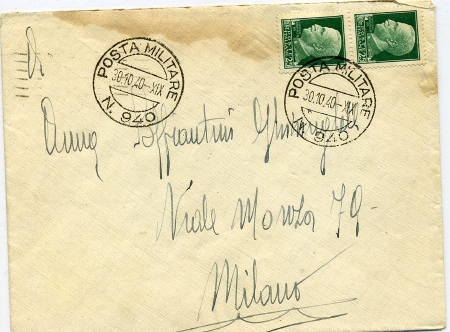 POSTA MILITARE
30.10.40-XIX
N. 940
POSTA MILITARE
30.10.40-XIX
N. 940
Anna
Viale Monza 79
Milano